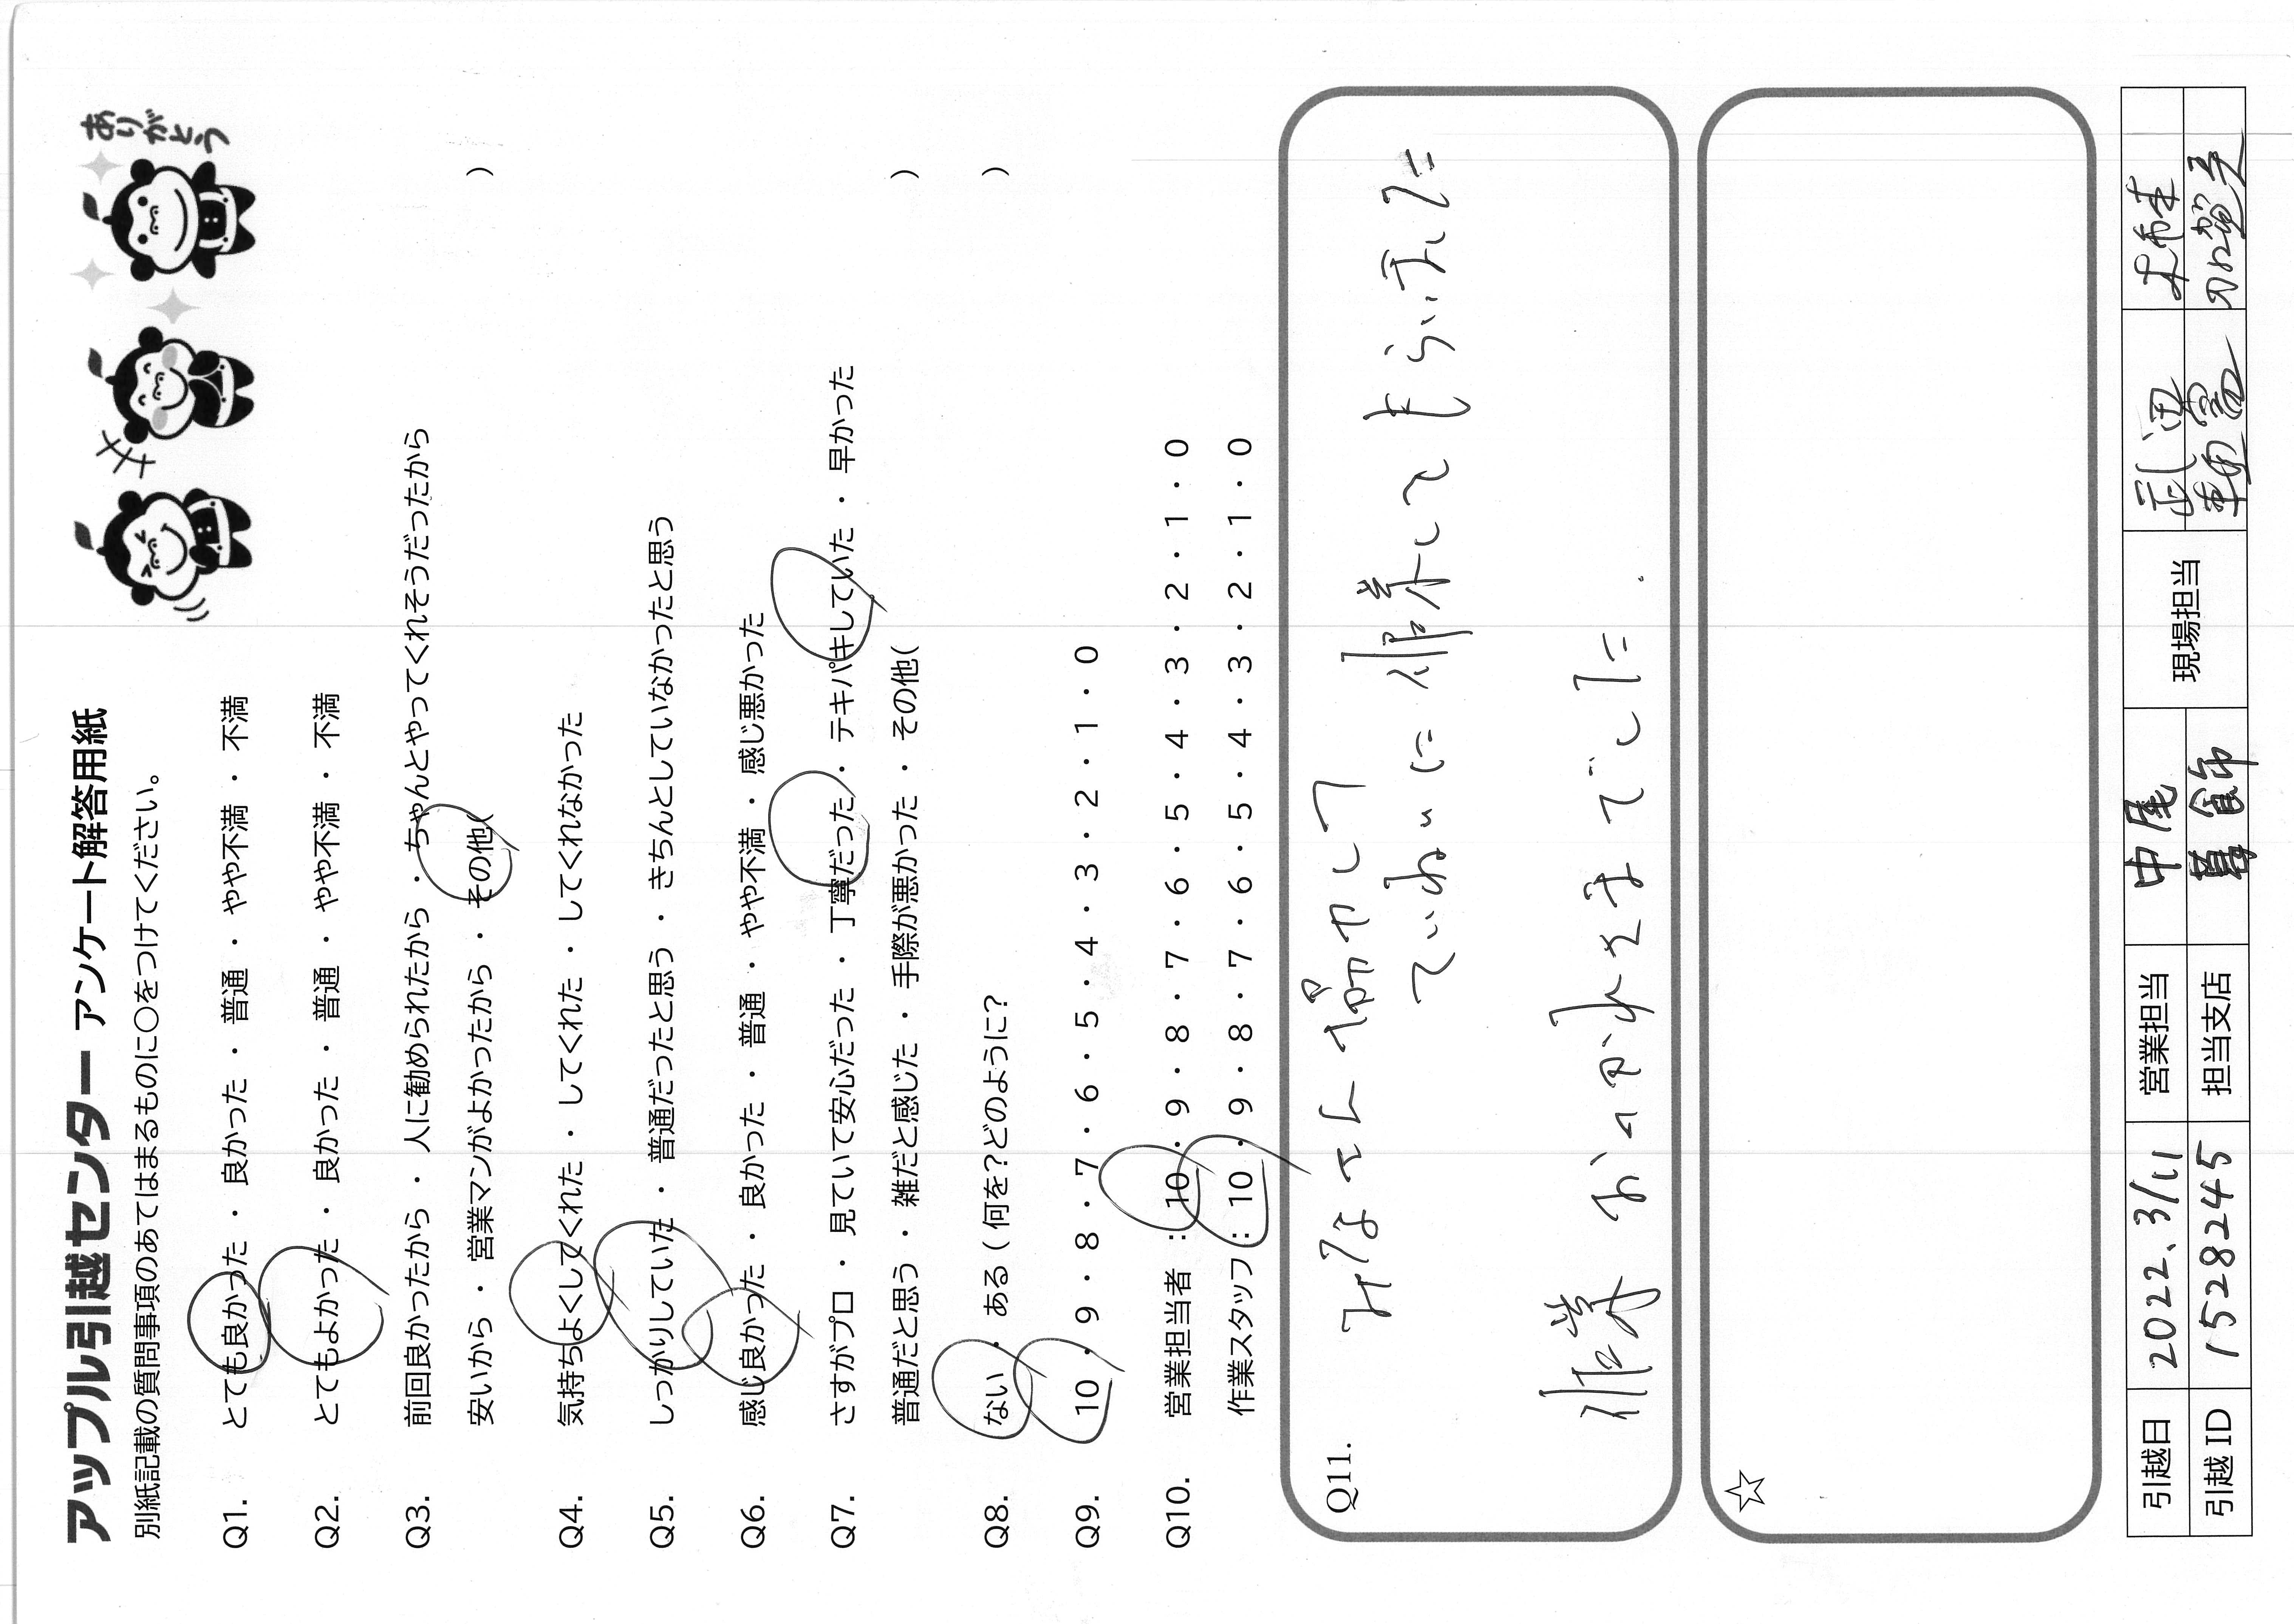 アップル引越センター アンケート解答用紙
ありがとう
別紙記載の質問事項のあてはまるものに〇をつけてください。
Q1. とても良かった ・ 良かった ・ 普通 ・ やや不満 ・ 不満
Q2. とてもよかった ・ 良かった ・ 普通 ・ やや不満 ・ 不満
Q3. 前回良かったから ・ 人に勧められたから ・ ちゃんとやってくれそうだったから
安いから ・ 営業マンがよかったから ・ その他( )
Q4. 気持ちよくしてくれた ・ してくれた ・ してくれなかった
Q5. しっかりしていた ・ 普通だったと思う ・ きちんとしていなかったと思う
Q6. 感じ良かった ・ 良かった ・ 普通 ・ やや不満 ・ 感じ悪かった
Q7. さすがプロ ・ 見ていて安心だった ・ 丁寧だった ・ テキパキしていた ・ 早かった
普通だと思う ・ 雑だと感じた ・ 手際が悪かった ・ その他( )
Q8. ない ・ ある ( 何を?どのように? )
Q9. 10 ・ 9 ・ 8 ・ 7 ・ 6 ・ 5 ・ 4 ・ 3 ・ 2 ・ 1 ・ 0
Q10. 営業担当者 : 10 ・ 9 ・ 8 ・ 7 ・ 6 ・ 5 ・ 4 ・ 3 ・ 2 ・ 1 ・ 0
作業スタッフ : 10 ・ 9 ・ 8 ・ 7 ・ 6 ・ 5 ・ 4 ・ 3 ・ 2 ・ 1 ・ 0
Q11. みなさん協力して
ていねいに作業してもらいました
作業 おつかれさまでした.
☆
引越日 2022.3/11 営業担当 中尾 現場担当
引越ID 1528245 担当支店